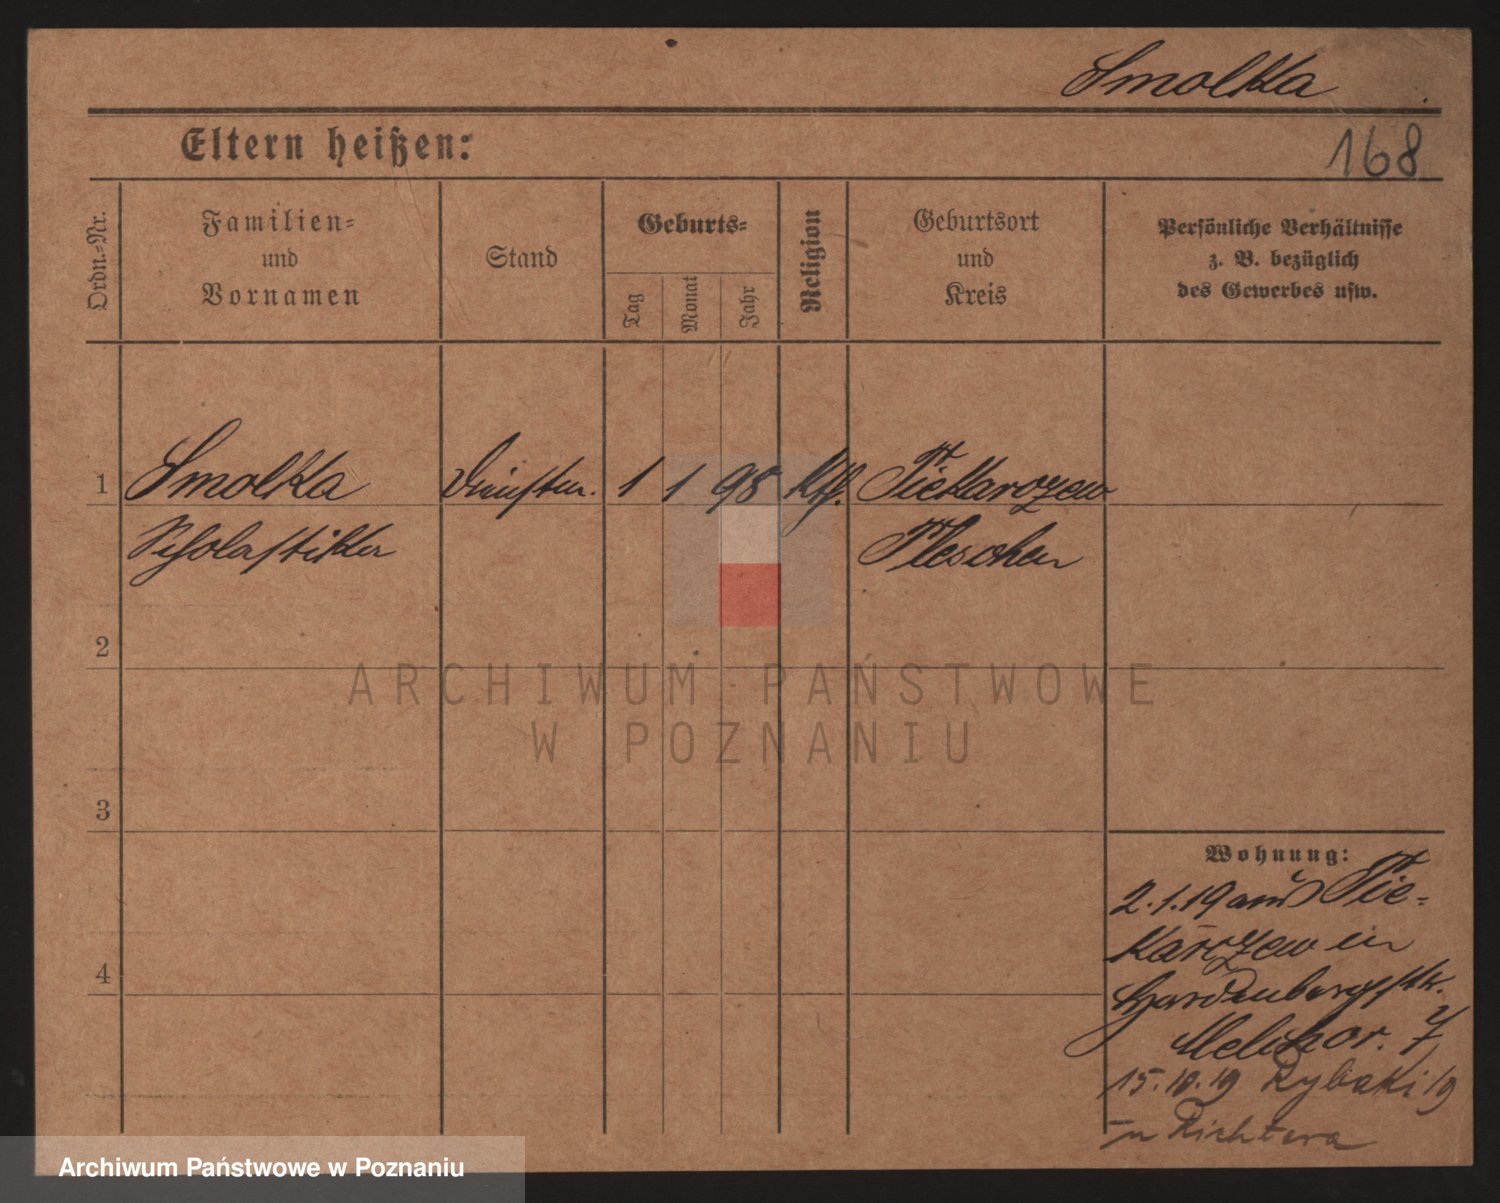 Smolka
Eltern heißen:
168
Ordn.=Nr.
Familien=
und
Vornamen
Stand
Geburts=
Tag
Monat
Jahr
Religion
Geburtsort
und
Kreis
Persönliche Verhältnisse
z. B. bezüglich
des Gewerbes usw.
1
Smolka
Dienstm.
1
1
98
Kth.
Piekarczew
Scholastika
Pleschen
2
ARCHIWUM PAŃSTWOWE
W POZNANIU
3
Wohnung:
2.1.19 aus Pie=
karczew in
4
Hardenbergstr.
Melchor. 7
15.10.19 Rybaki 19
u Richtera
Archiwum Państwowe w Poznaniu